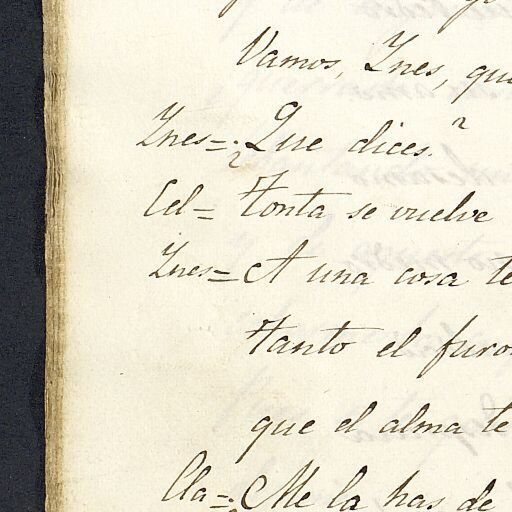 Vamos, Ynes, que
Ynes=¿Que dices?
Cel= Tonta se vuelve
Ynes= A una cosa te
Tanto el furo
que el alma te
Cla=¿Me la has de